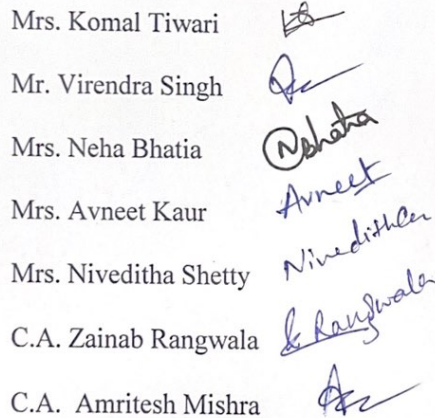 Mrs. Komal Tiwari
Mr. Virendra Singh
Mrs. Neha Bhatia Nbhatia
Mrs. Avneet Kaur Avneet
Mrs. Niveditha Shetty Niveditha
C.A. Zainab Rangwala Rangwala
C.A. Amritesh Mishra